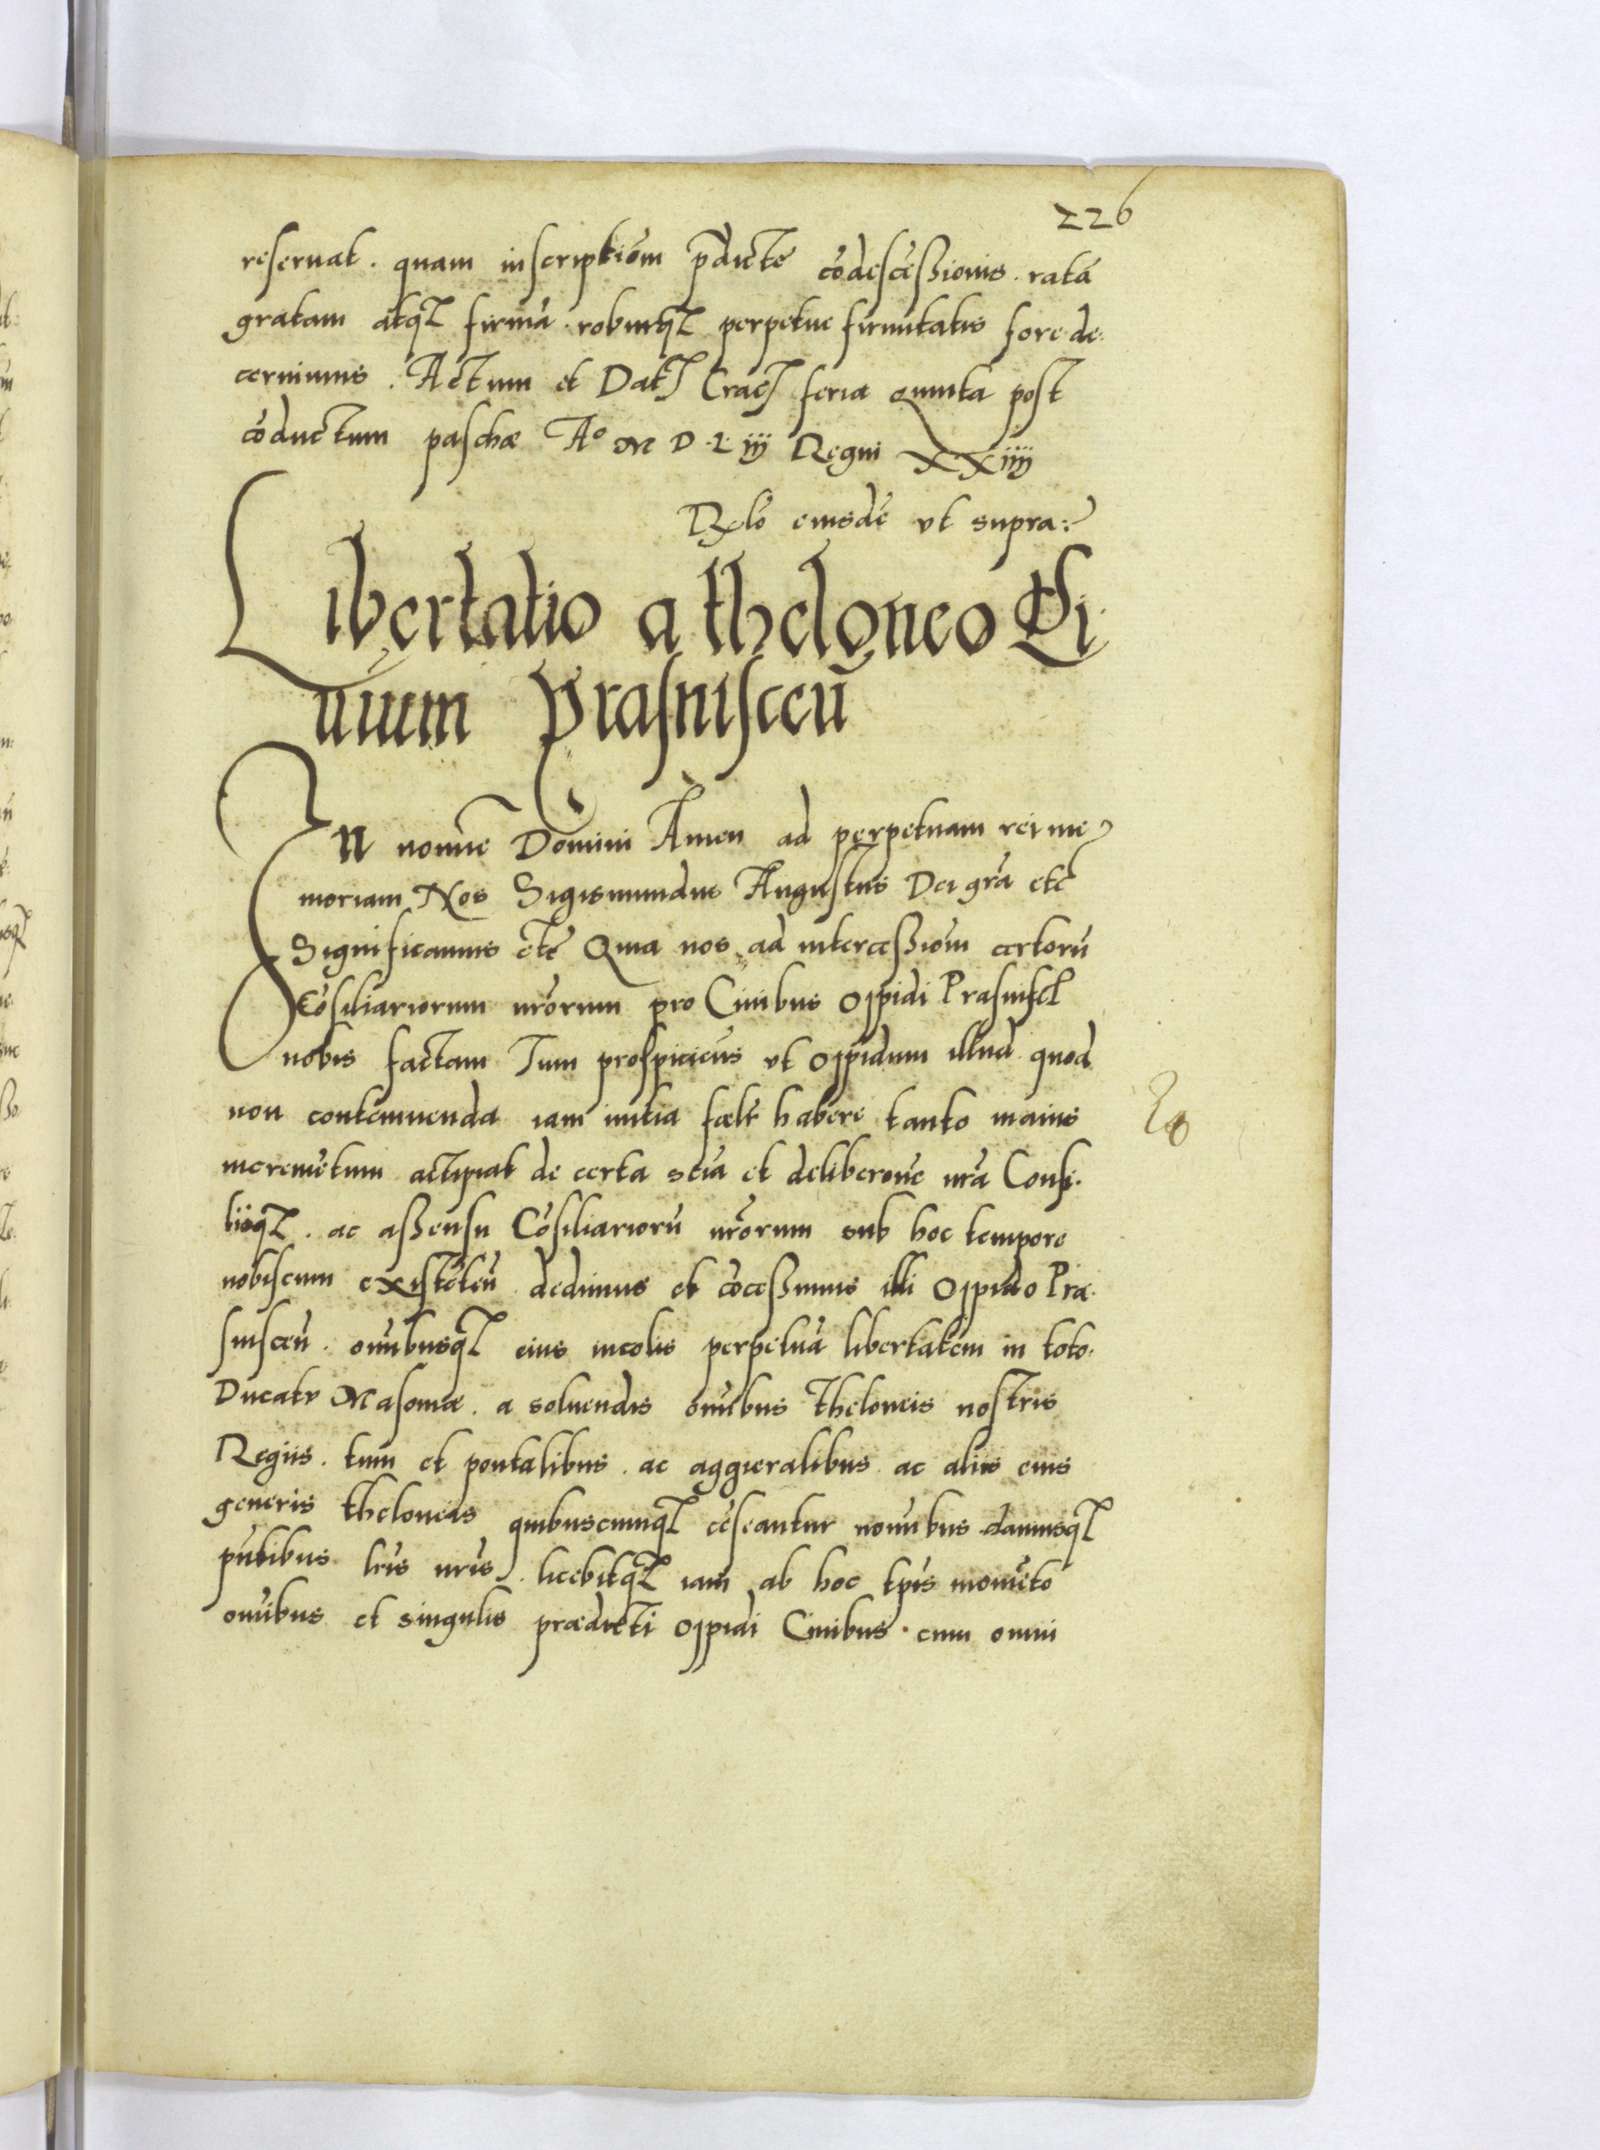 226
reseruat. quam inscriptiōm p̄dictē cōdescēssionis. ratā
gratam atq3 firmā. roburq3 perpetue firmitatis fore de-
cernimus. Actum et Dat3 Crac3 feria quinta post
cōductum paschæ Aº M D L iij Regni XXiiij
Rxlō eiusdē vt supra:
Libertatio a theloneo Ci-
uium Prasnisceñ
In nomīe Domini Amen ad perpetuam rei me-
moriam Nos Sigismundus Augustus Dei gr̄a etc̄
Significamus etc̄ Quia nos ad intercessiōm certorū
Cōsiliariorum nr̄orum pro Ciuibus oppidi Prasnisc3
nobis factam Tum prospiciēns vt oppidum illud quod
non contemnenda iam initia fælr habere tanto maius
incremētum accipiat de certa sciā et deliberōne nr̄a Consi-
lioq3. ac assensu Cōsiliariorū nr̄orum sub hoc tempore
nobiscum existēteū dedimus et cōcessimus illi Oppido Pra-
snisceñ. om̄ibusq3 eius incolis perpetuā libertatem in toto
Ducatu Masouiæ. a soluendis om̄ibus theloneis nostris
Regiis. tum et pontalibus. ac aggeralibus ac aliis eius
generis theloneis quibuscumq3 cēseantur nom̄ibus damusq3
pn̄tibus lr̄is nr̄is. licebitq3 iam ab hoc tp̄is momēto
om̄ibus et singulis prædicti oppidi Ciuibus. cum omni